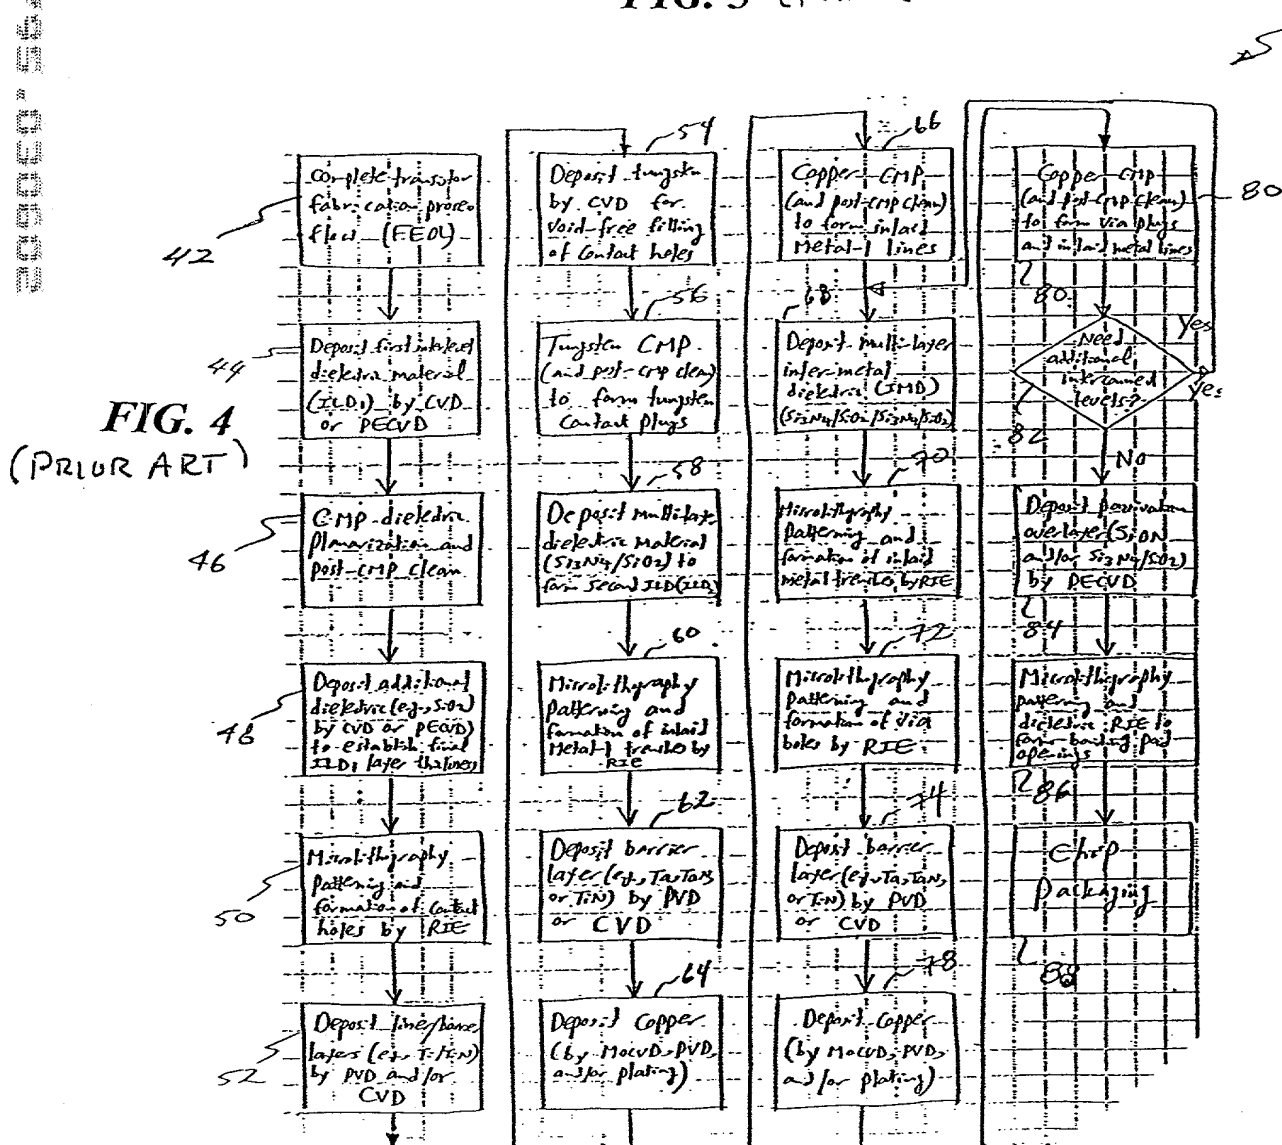 FIG. 3
FIG. 4
(PRIOR ART)
42
Complete transistor
fabrication process
flow (FEOL)
44
Deposit first interlevel
dielectric material
(ILD1) by CVD
or PECVD
46
CMP dielectric
planarization and
post-CMP clean
48
Deposit additional
dielectric (e.g., SiO2)
by CVD or PECVD)
to establish final
ILD1 layer thickness
50
Microlithography
patterning and
formation of contact
holes by RIE
52
Deposit liner/barrier
layers (e.g., Ti/TiN)
by PVD and/or
CVD
54
Deposit tungsten
by CVD for
void-free filling
of contact holes
56
Tungsten CMP
(and post-CMP clean)
to form tungsten
Contact plugs
58
Deposit multilayer
dielectric material
(Si3N4/SiO2) to
form second ILD (ILD2)
60
Microlithography
patterning and
formation of inlaid
Metal-1 trenches by
RIE
62
Deposit barrier
layer (e.g., Ta, TaN,
or TiN) by PVD
or CVD
64
Deposit Copper
(by MOCVD, PVD,
and/or plating)
66
Copper CMP
(and post-CMP clean)
to form inlaid
Metal-1 lines
68
Deposit multilayer
inter-metal
dielectric (IMD)
(Si3N4/SiO2/Si3N4/SiO2)
70
Microlithography
patterning and
formation of inlaid
metal trenches by RIE
72
Microlithography
patterning and
formation of via
holes by RIE
74
Deposit barrier
layer (e.g., Ta, TaN,
or TiN) by PVD
or CVD
78
Deposit Copper
(by MOCVD, PVD,
and/or plating)
80
Copper CMP
(and post-CMP clean)
to form via plugs
and inlaid metal lines
80
Need
additional
interconnect
levels?
Yes
Yes
82
No
Deposit passivation
overlayer (SiON
and/or Si3N4/SiO2)
by PECVD
84
Microlithography
patterning and
dielectric RIE to
form bonding pad
openings
86
Chip
Packaging
88